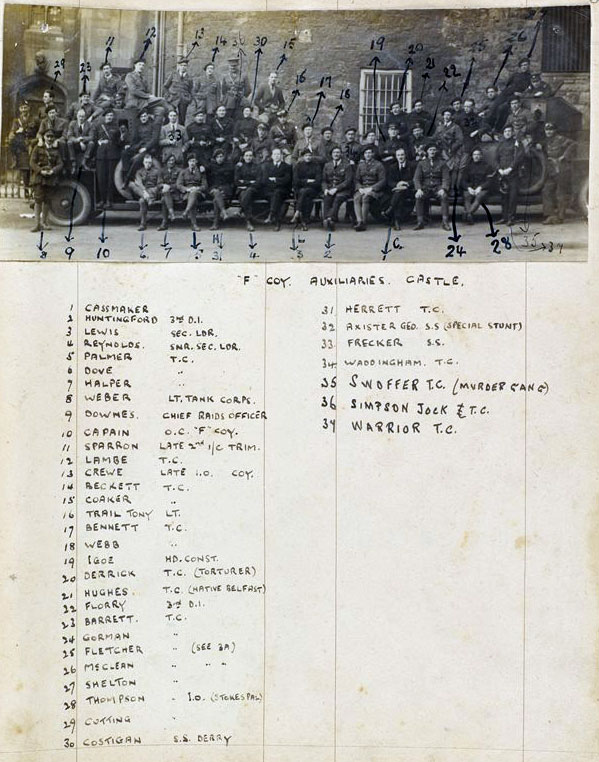 29 23 11 12 13 14 36 30 15 16 17 18 19 20 21 22 25 26 27
33
8 9 10 6 7 5 31 4 3 2 1 24 28 35 →34
"F" COY. AUXILIARIES. CASTLE.
1 CASSMAKER
2 HUNTINGFORD 3RD D.I.
3 LEWIS SEC. LDR.
4 REYNOLDS. SNR. SEC. LDR.
5 PALMER T.C.
6 DOVE "
7 HALPER "
8 WEBER LT. TANK CORPS.
9 DOWNES. CHIEF RAIDS OFFICER
10 CAPAIN O.C. "F" COY.
11 SPARRON LATE 2nd I/C TRIM.
12 LAMBE T.C.
13 CREWE LATE I.O. COY.
14 BECKETT T.C.
15 COAKER "
16 TRAIL TONY LT.
17 BENNETT T.C.
18 WEBB "
19 IGOE HD. CONST.
20 DERRICK T.C. (TORTURER)
21 HUGHES T.C. (NATIVE BELFAST)
22 FLORRY 3RD D.I.
23 BARRETT. T.C.
24 GORMAN "
25 FLETCHER " (SEE 3A)
26 MCCLEAN " " "
27 SHELTON "
28 THOMPSON " I.O. (STOKES PAL)
29 CUTTING "
30 COSTIGAN S.S. DERRY
31 HERRETT T.C.
32 AXISTER GEO. S.S (SPECIAL STUNT)
33 FRECKER S.S.
34 WADDINGHAM. T.C.
35 SWOFFER T.C. (MURDER GANG)
36 SIMPSON JOCK T.C.
37 WARRIOR T.C.